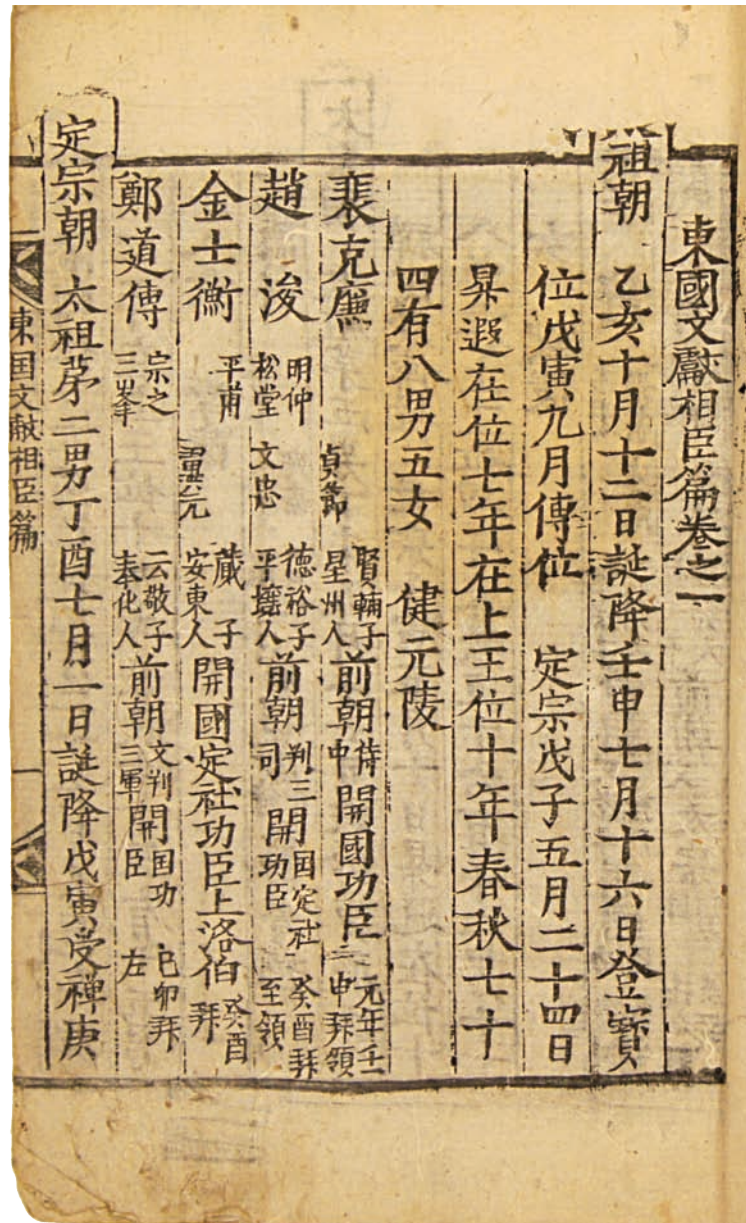 東國文獻相臣篇卷之一
祖朝 乙亥十月十二日誕降壬申七月十六日登寶
位戊寅九月傳位 定宗戊子五月二十四日
昇遐在位七年在上王位十年春秋七十
四有八男五女 健元陵
裴克廉 貞節 賢輔子 星州人 前朝 侍中 開國功臣 元年壬申拜領
趙浚 明仲 松堂 文忠 德裕子 平壤人 前朝 判三司 開 国定社 功臣 癸酉拜 至領
金士衡 平甫 翼元 蕆子 安東人 開國定社功臣上洛伯 癸酉 拜
鄭道傳 宗之 三峯 云敬子 奉化人 前朝 文判 三軍 開 国功 臣 己卯拜 左
定宗朝 太祖苐二男丁酉七月一日誕降戊寅受禪庚
東国文献相臣篇